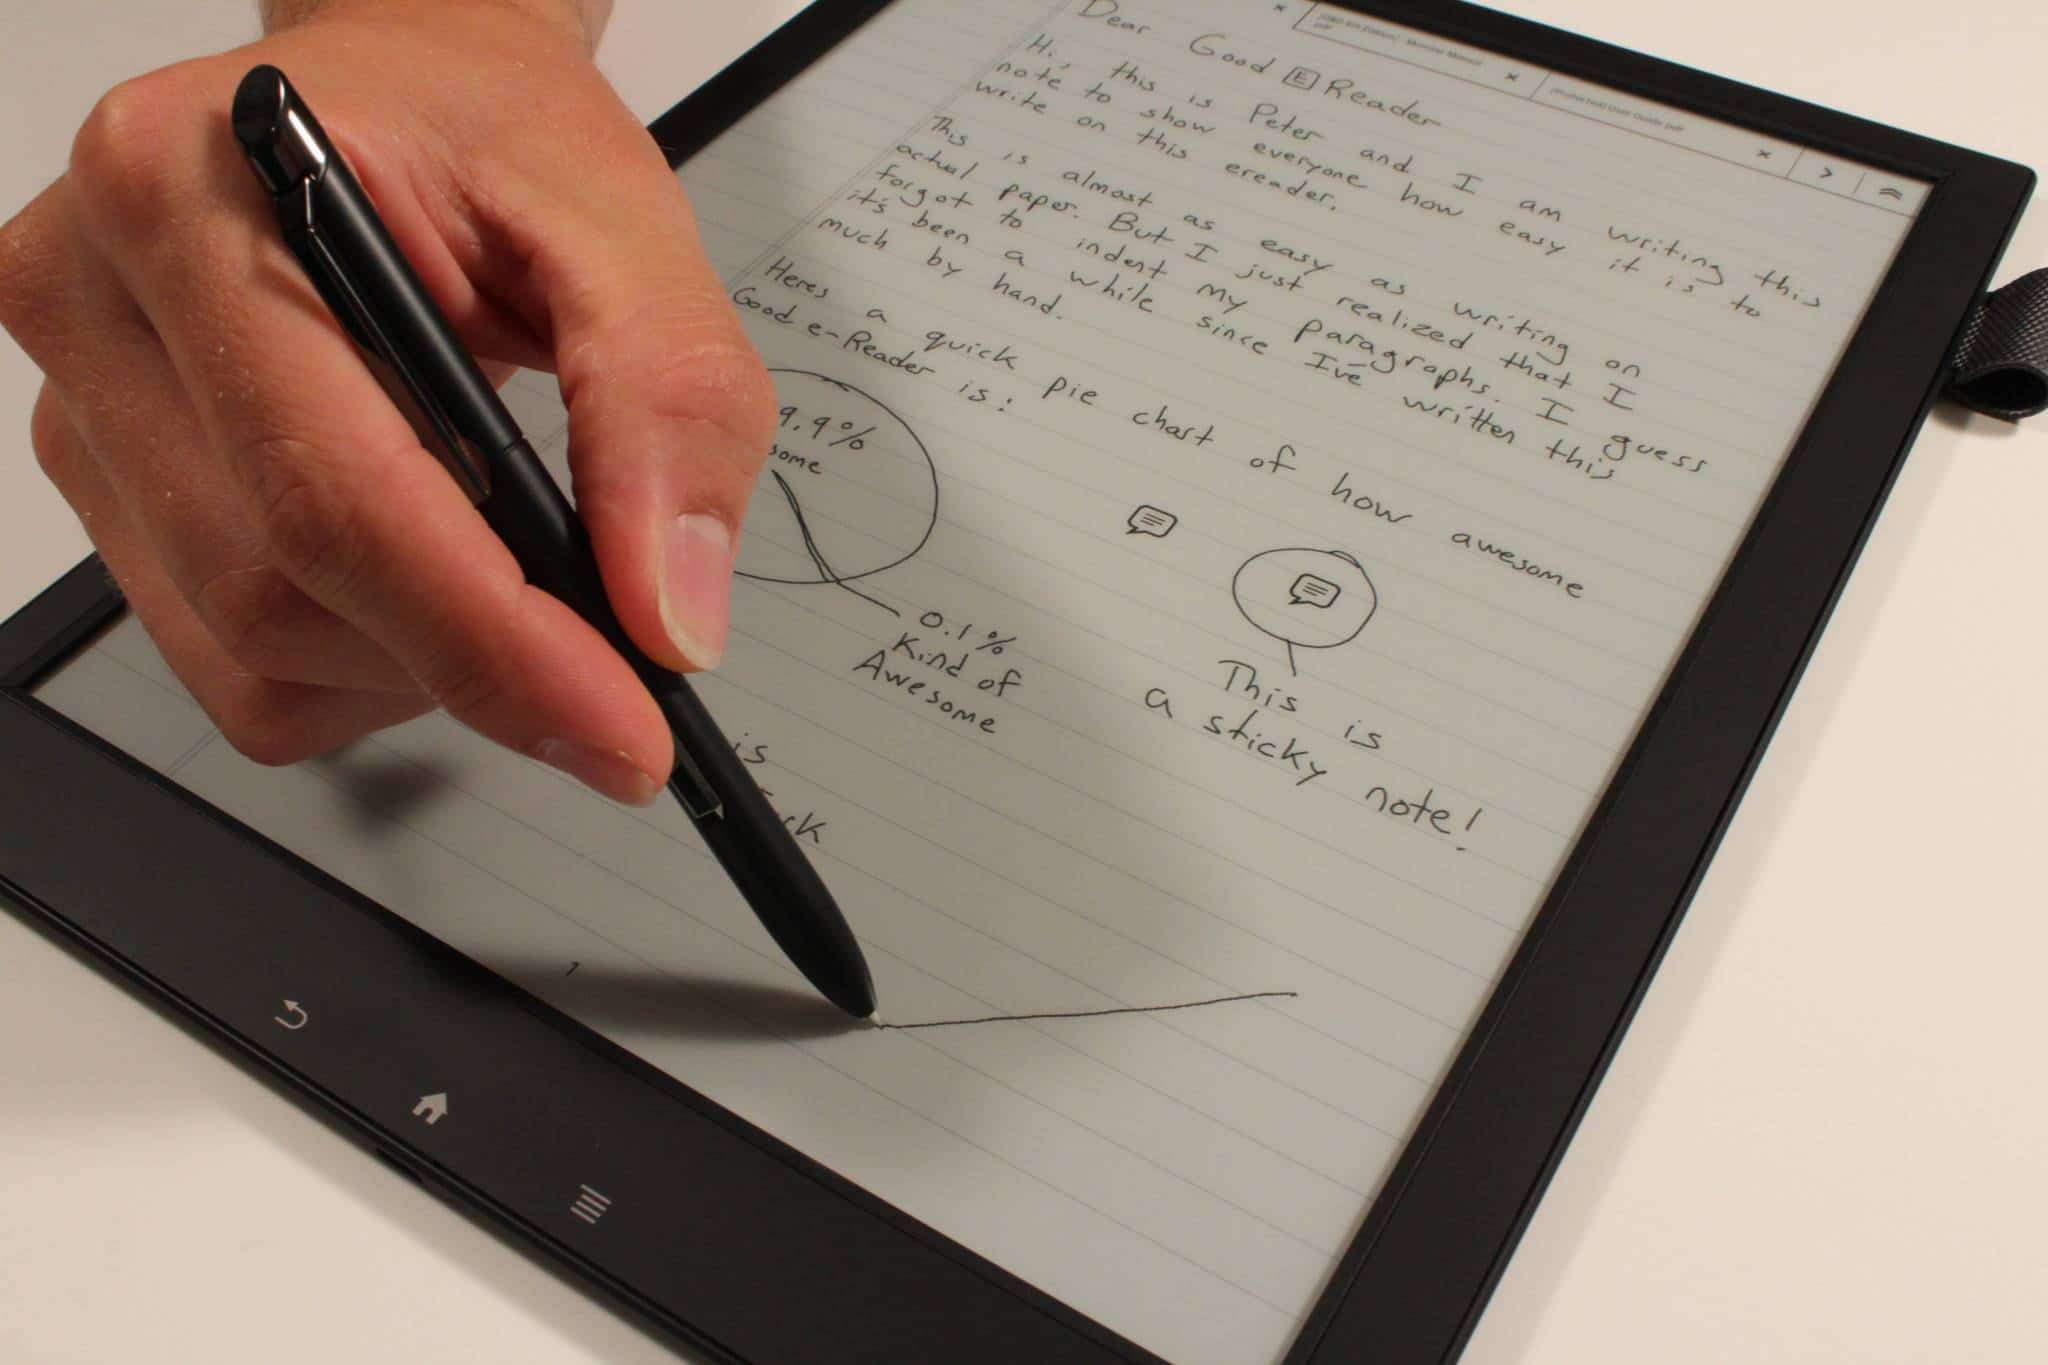 User Guide.pdf
Dear Good E Reader
Hi, this is Peter and I am writing this
note to show everyone how easy it is to
write on this ereader.
This is almost as easy as writing on
actual paper. But I just realized that I
forgot to indent my paragraphs. I guess
it's been a while since I've written this
much by hand.
Heres a quick pie chart of how awesome
Good e-Reader is:
9.9%
some
0.1%
Kind of
Awesome
This is
a sticky note!
is
1